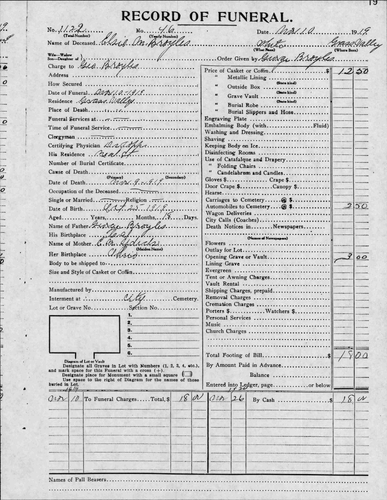 19
RECORD OF FUNERAL.
No. 1122 No. 46 Date, Nov 10 1919
(Total Number) (Yearly Number)
Name of Deceased, M. Broyles White Grass Valley
Charge to Geo. Broyles Order Given by George Broyles
Address Price of Casket or Coffin 12 50
Metallic Lining
Date of Funeral Nov 10 1919 " Outside Box
Residence Grass Valley " Grave Vault
Place of Death " Burial Robe
Funeral Services at " Burial Slippers and Hose
Time of Funeral Service Engraving Plate
Clergyman Embalming Body (with Fluid)
Certifying Physician Washing and Dressing
His Residence Shaving
Number of Burial Certificate Keeping Body on Ice
Cause of Death Disinfecting Rooms
Date of Death Nov. 9. 1919 Use of Catafalque and Drapery
Occupation of the Deceased " Folding Chairs
Single or Married Religion " Candelabrum and Candles
Date of Birth Oct 25 1919 Gloves $ Crape $
Aged, Years, Months, Door Crape $ Canopy $
Name of Father George Broyles Hearse
His Birthplace Carriages to Cemetery @ $
Name of Mother Automobiles to Cemetery @ $ 2 50
(Maiden Name) Wagon Deliveries
Her Birthplace Ohio City Calls (Coaches)
Body to be shipped to Death Notices in Newspapers
Size and Style of Casket or Coffin (Names of Newspapers)
Flowers
Outlay for Lot
Opening Grave or Vault 3 00
Lining Grave
Evergreen
Manufactured by Tent or Awning Charges
Interment at City Cemetery. Vault Rental
Lot or Grave No. Section No. Shipping Charges, prepaid
1. Removal Charges
2. Cremation Charges
3. Porters $ Watchers $
4. Personal Services
5. Music
6. Church Charges
7.
8. Total Footing of Bill
9. By Amount Paid in Advance
10. Balance
Diagram of Lot or Vault
Designate all Graves in Lot with Numbers (1, 2, 3, 4, etc.),
and mark space for this Funeral with a cross (+)
Designate place for Monument with a small square
Use space to the right of Diagram for the names of those
buried in Lot.
Entered into Ledger, page or below.
Nov 10 To Funeral Charges Total, $ 18 00 Nov 26 By Cash 18 00
Names of Pall Bearers